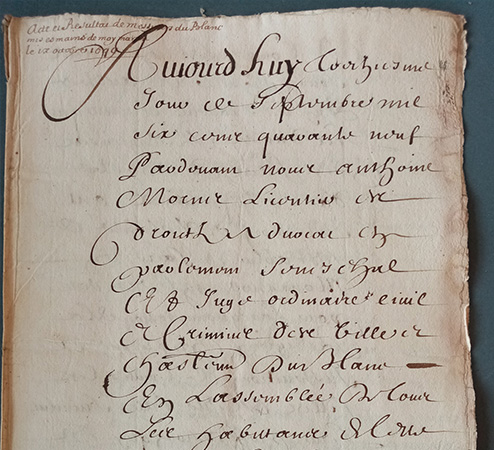 Acte et Résultat de messieurs du Blanc
mis es mains de moy
le ix octobre 1649
Aujourd huy
Jour de Septembre mil
Six cens quarante neuf
Pardevant nous anthoine
Licentié es
droictz Advocat en
parlement Seneschal
et Juge ordinaire civil
et Criminel des Ville et
chasteau du Blanc
En Lassemblée de tous
les habitans de